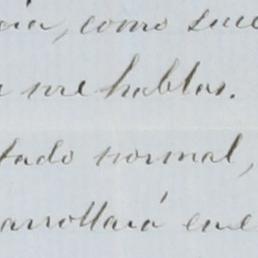 cia, como suce
me hablas.
tado normal,
arrollará en el